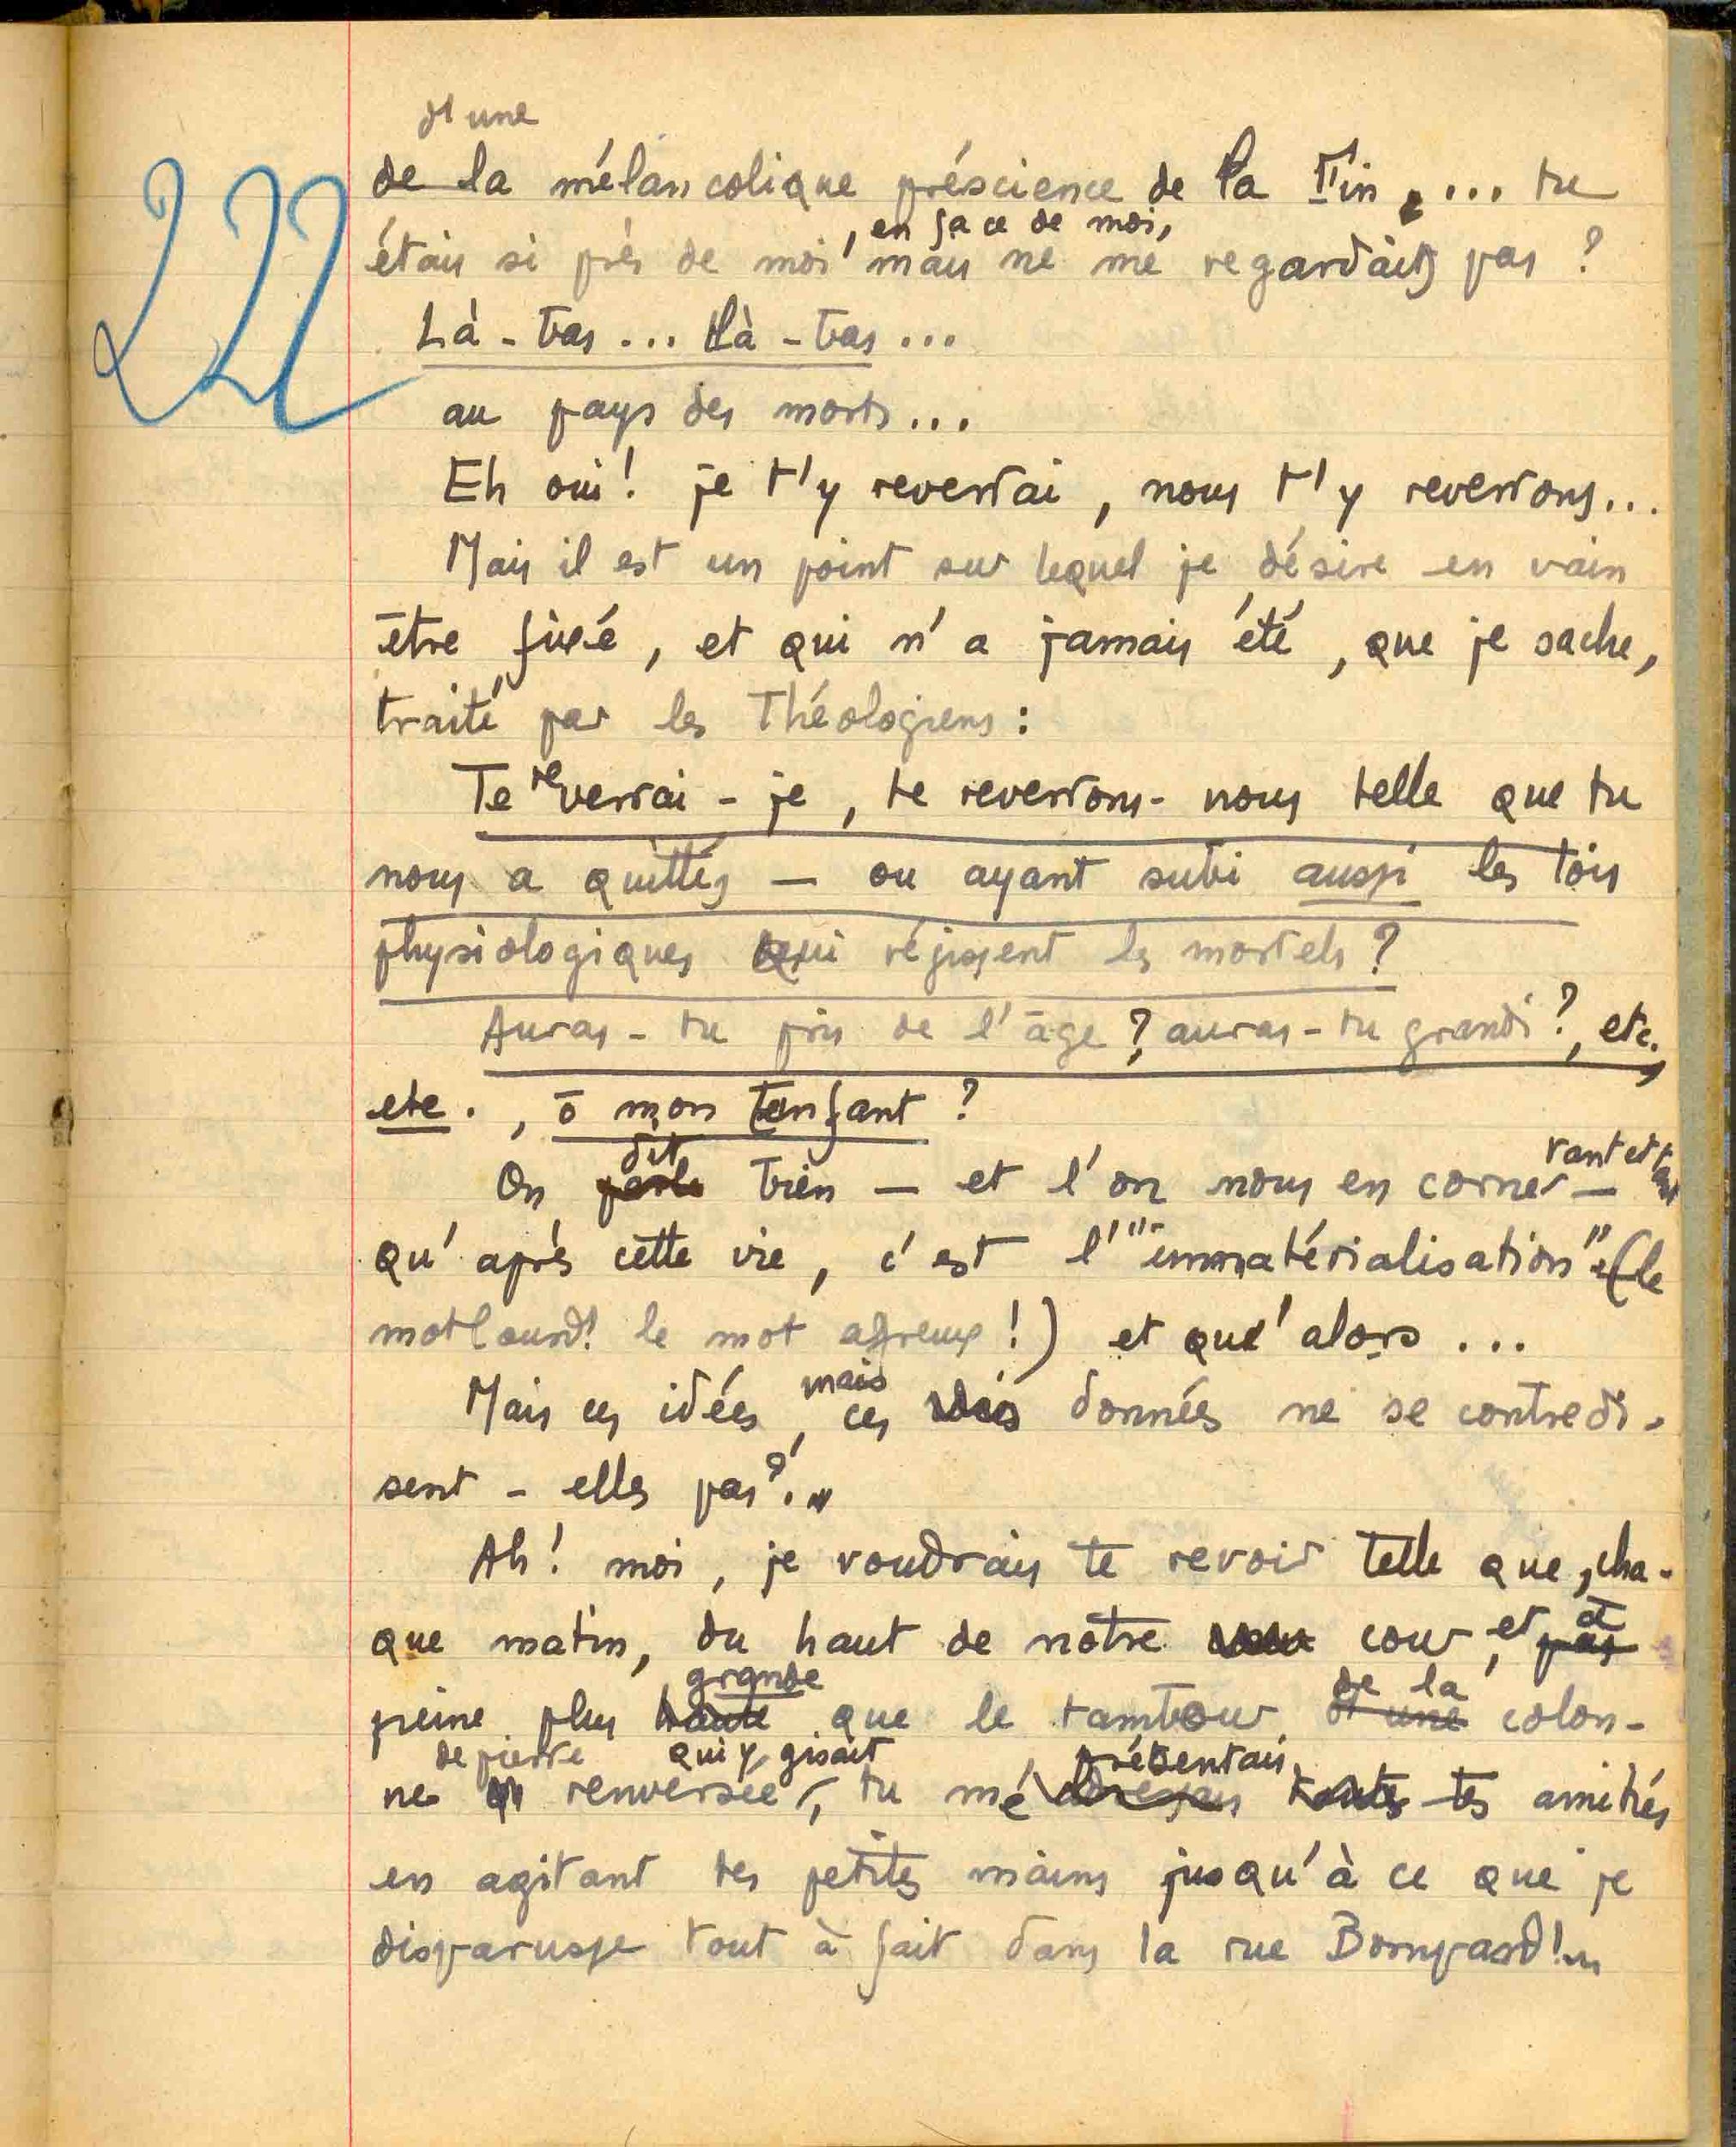 d'une
222
de la mélancolique préscience de la Fin, ... tu
, en face de moi,
étais si près de moi mais ne me regardais pas ?
Là-bas ... Là-bas ...
au pays des morts ...
Eh oui ! je t'y reverrai, nous t'y reverrons ...
Mais il est un point sur lequel je désire en vain
être fixé, et qui n'a jamais été, que je sache,
traité par les Théologiens :
Te reverrai-je, te reverrons-nous telle que tu
nous a quittés — ou ayant subi aussi les lois
physiologiques qui régissent les mortels ?
Auras-tu pris de l'âge ? auras-tu grandi ?, etc.,
etc., ô mon enfant ?
dit
rant et
On parle bien — et l'on nous en corne —
qu'après cette vie, c'est l'"immatérialisation" (le
mot lourd ! le mot affreux !) et qu'alors ...
mais
Mais ces idées, ces données ne se contredi-
sent-elles pas ? ..
Ah ! moi, je voudrais te revoir telle que, cha-
que matin, du haut de notre cour, et à
grande de la
peine plus haute que le tambour d'une colon-
de pierre qui y gisait présentais
ne renversée, tu me toutes tes amitiés
en agitant tes petites mains jusqu'à ce que je
disparusse tout à fait dans la rue Bompard ! ...